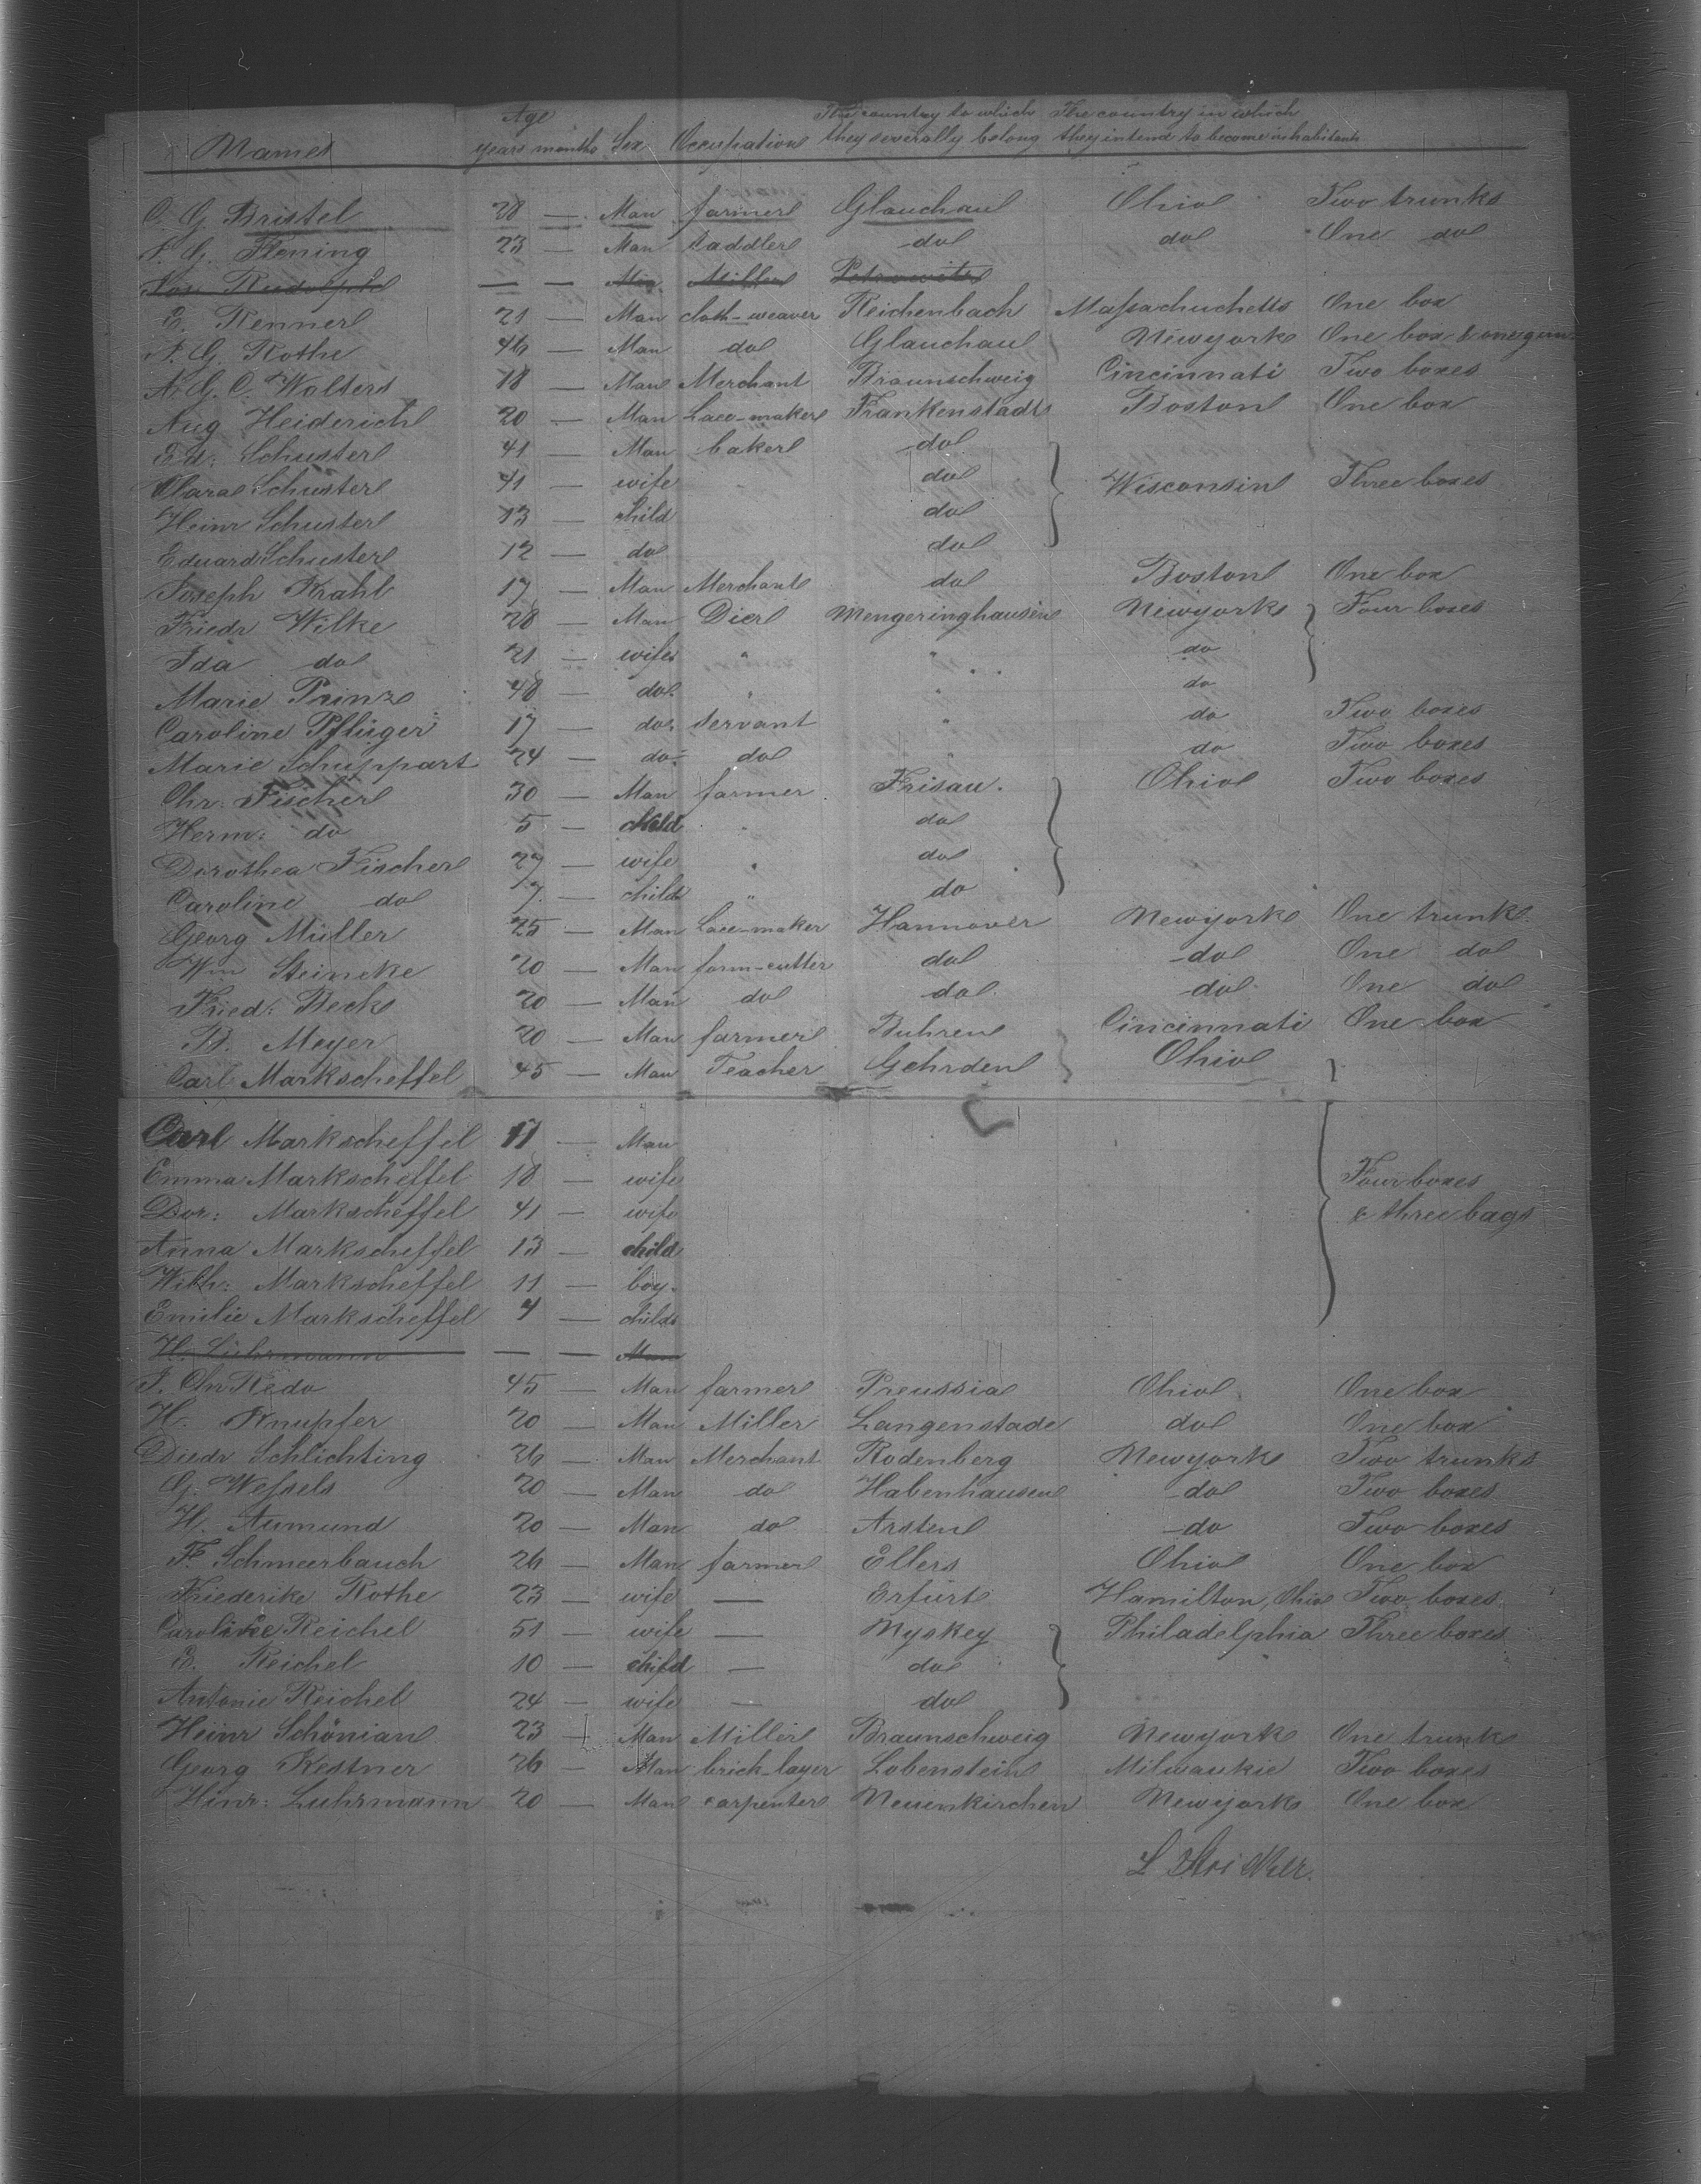 Names Age years months Sex Occupation The country to which they severally belong The country in which they intend to become inhabitants
C. G. Bristel 28 — Man farmer Glauchau Ohio Two trunks
F. G. Flening 23 — Man saddler do do One do
Jos Rudolph — — Man Miller Petrowitz
E. Renner 21 — Man cloth-weaver Reichenbach Massachuchetts One box
F. G. Rothe 46 — Man do Glauchau Newyork One box & one gun
A. G. C. Wolters 18 — Man Merchant Braunschweig Cincinnati Two boxes
Aug Heiderich 20 — Man Lace-maker Frankenstadt Boston One box
Ed: Schuster 41 — Man baker do
Clara Schuster 41 — wife do Wisconsin Three boxes
Heinr Schuster 13 — child do
Eduard Schuster 12 — do do
Joseph Krahl 17 — Man Merchant do Boston One box
Friedr Wilke 28 — Man Dier Mengeringhausen Newyork Four boxes
Ida do 21 — wife " " do
Marie Prinz 48 — do " " do
Caroline Pflüger 17 — do servant " do Two boxes
Marie Schuppart 24 — do do " do Two boxes
Chr: Fischer 30 — Man farmer Frisau. Ohio Two boxes
Herm: do 5 — child " do
Dorothea Fischer 27 — wife " do
Caroline do 7 — child " do
Georg Müller 25 — Man Lace-maker Hannover Newyork One trunk
Wm Steincke 20 — Man form-cutter do do One do
Fried: Beck 20 — Man do do do One do
B. Meyer 20 — Man farmer Buhren Cincinnati One box
Carl Markscheffel 45 — Man Teacher Gehrden Ohio
Carl Markscheffel 17 — Man
Emma Markscheffel 18 — wife Four boxes
Dor: Markscheffel 41 — wife & three bags
Anna Markscheffel 13 — child
Wilh: Markscheffel 11 — boy.
Emilie Markscheffel 4 — child
H. Lührmann — — Man
J. Chr Redo 45 — Man farmer Preussia Ohio One box
H. Knupfer 20 — Man Miller Langenstade do One box
Diedr Schlichting 26 — Man Merchant Rodenberg Newyork Two trunks
G. Wessels 20 — Man do Habenhausen do Two boxes
H. Aumund 20 — Man do Arsten do Two boxes
F. Schmeerbauch 26 — Man farmer Ellers Ohio One box
Friederike Rothe 23 — wife — Erfurt Hamilton, Ohio Two boxes
Caroline Reichel 51 — wife — Nyskey Philadelphia Three boxes
E. Reichel 10 — child — do
Antonie Reichel 24 — wife — do
Heinr Schönian 23 — Man Miller Braunschweig Newyork One trunk
Georg Kestner 26 — Man brick-layer Lobenstein Milwaukie Two boxes
Hinr: Luhrmann 20 — Man carpenter Neuenkirchen Newyork One box